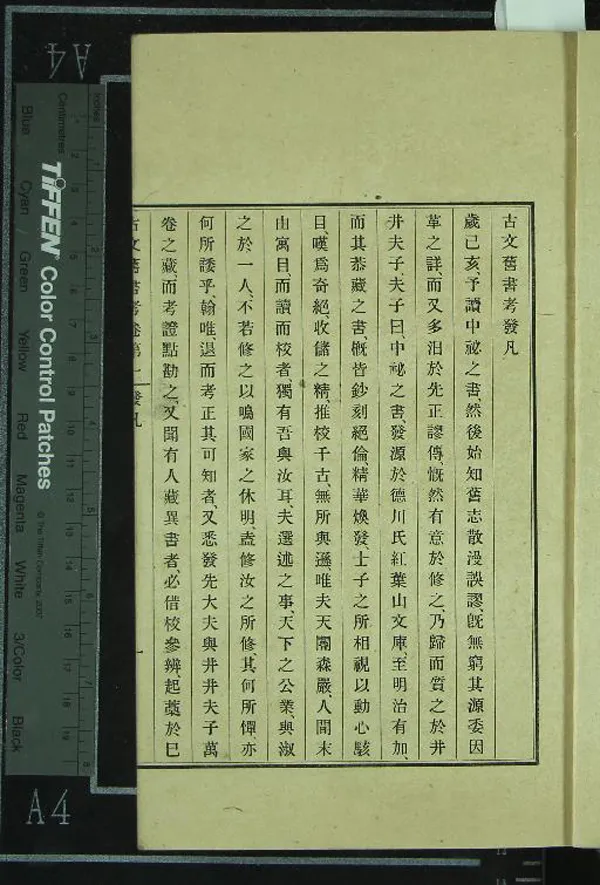 古文舊書考發凡
歲己亥、予讀中祕之書、然後始知舊志散漫誤謬、旣無窮其源委因
革之詳、而又多汨於先正謬傳、慨然有意於修之、乃歸而質之於井
井夫子、夫子曰、中祕之書、發源於德川氏紅葉山文庫、至明治有加、
而其恭藏之書、槪皆鈔刻絕倫、精華煥發、士子之所相視以動心駭
目、嘆爲奇絕、收儲之精、推校千古、無所與遜、唯夫天閽森嚴、人間末
由寓目、而讀而校者、獨有吾與汝耳、夫選述之事、天下之公業、與淑
之於一人、不若修之以鳴國家之休明、盍修汝之所修、其何所憚、亦
何所諉乎、翰唯、退而考正其可知者、又悉發先大夫與井井夫子萬
卷之藏、而考證點勘之、又聞有人藏異書者、必借校參辨、起藁於巳
古文舊書考卷第一 發凡 一
TIFFEN Color Control Patches
© The Tiffen Company, 2007
Centimetres
Inches
Blue Cyan Green Yellow Red Magenta White 3/Color Black
A4
A4